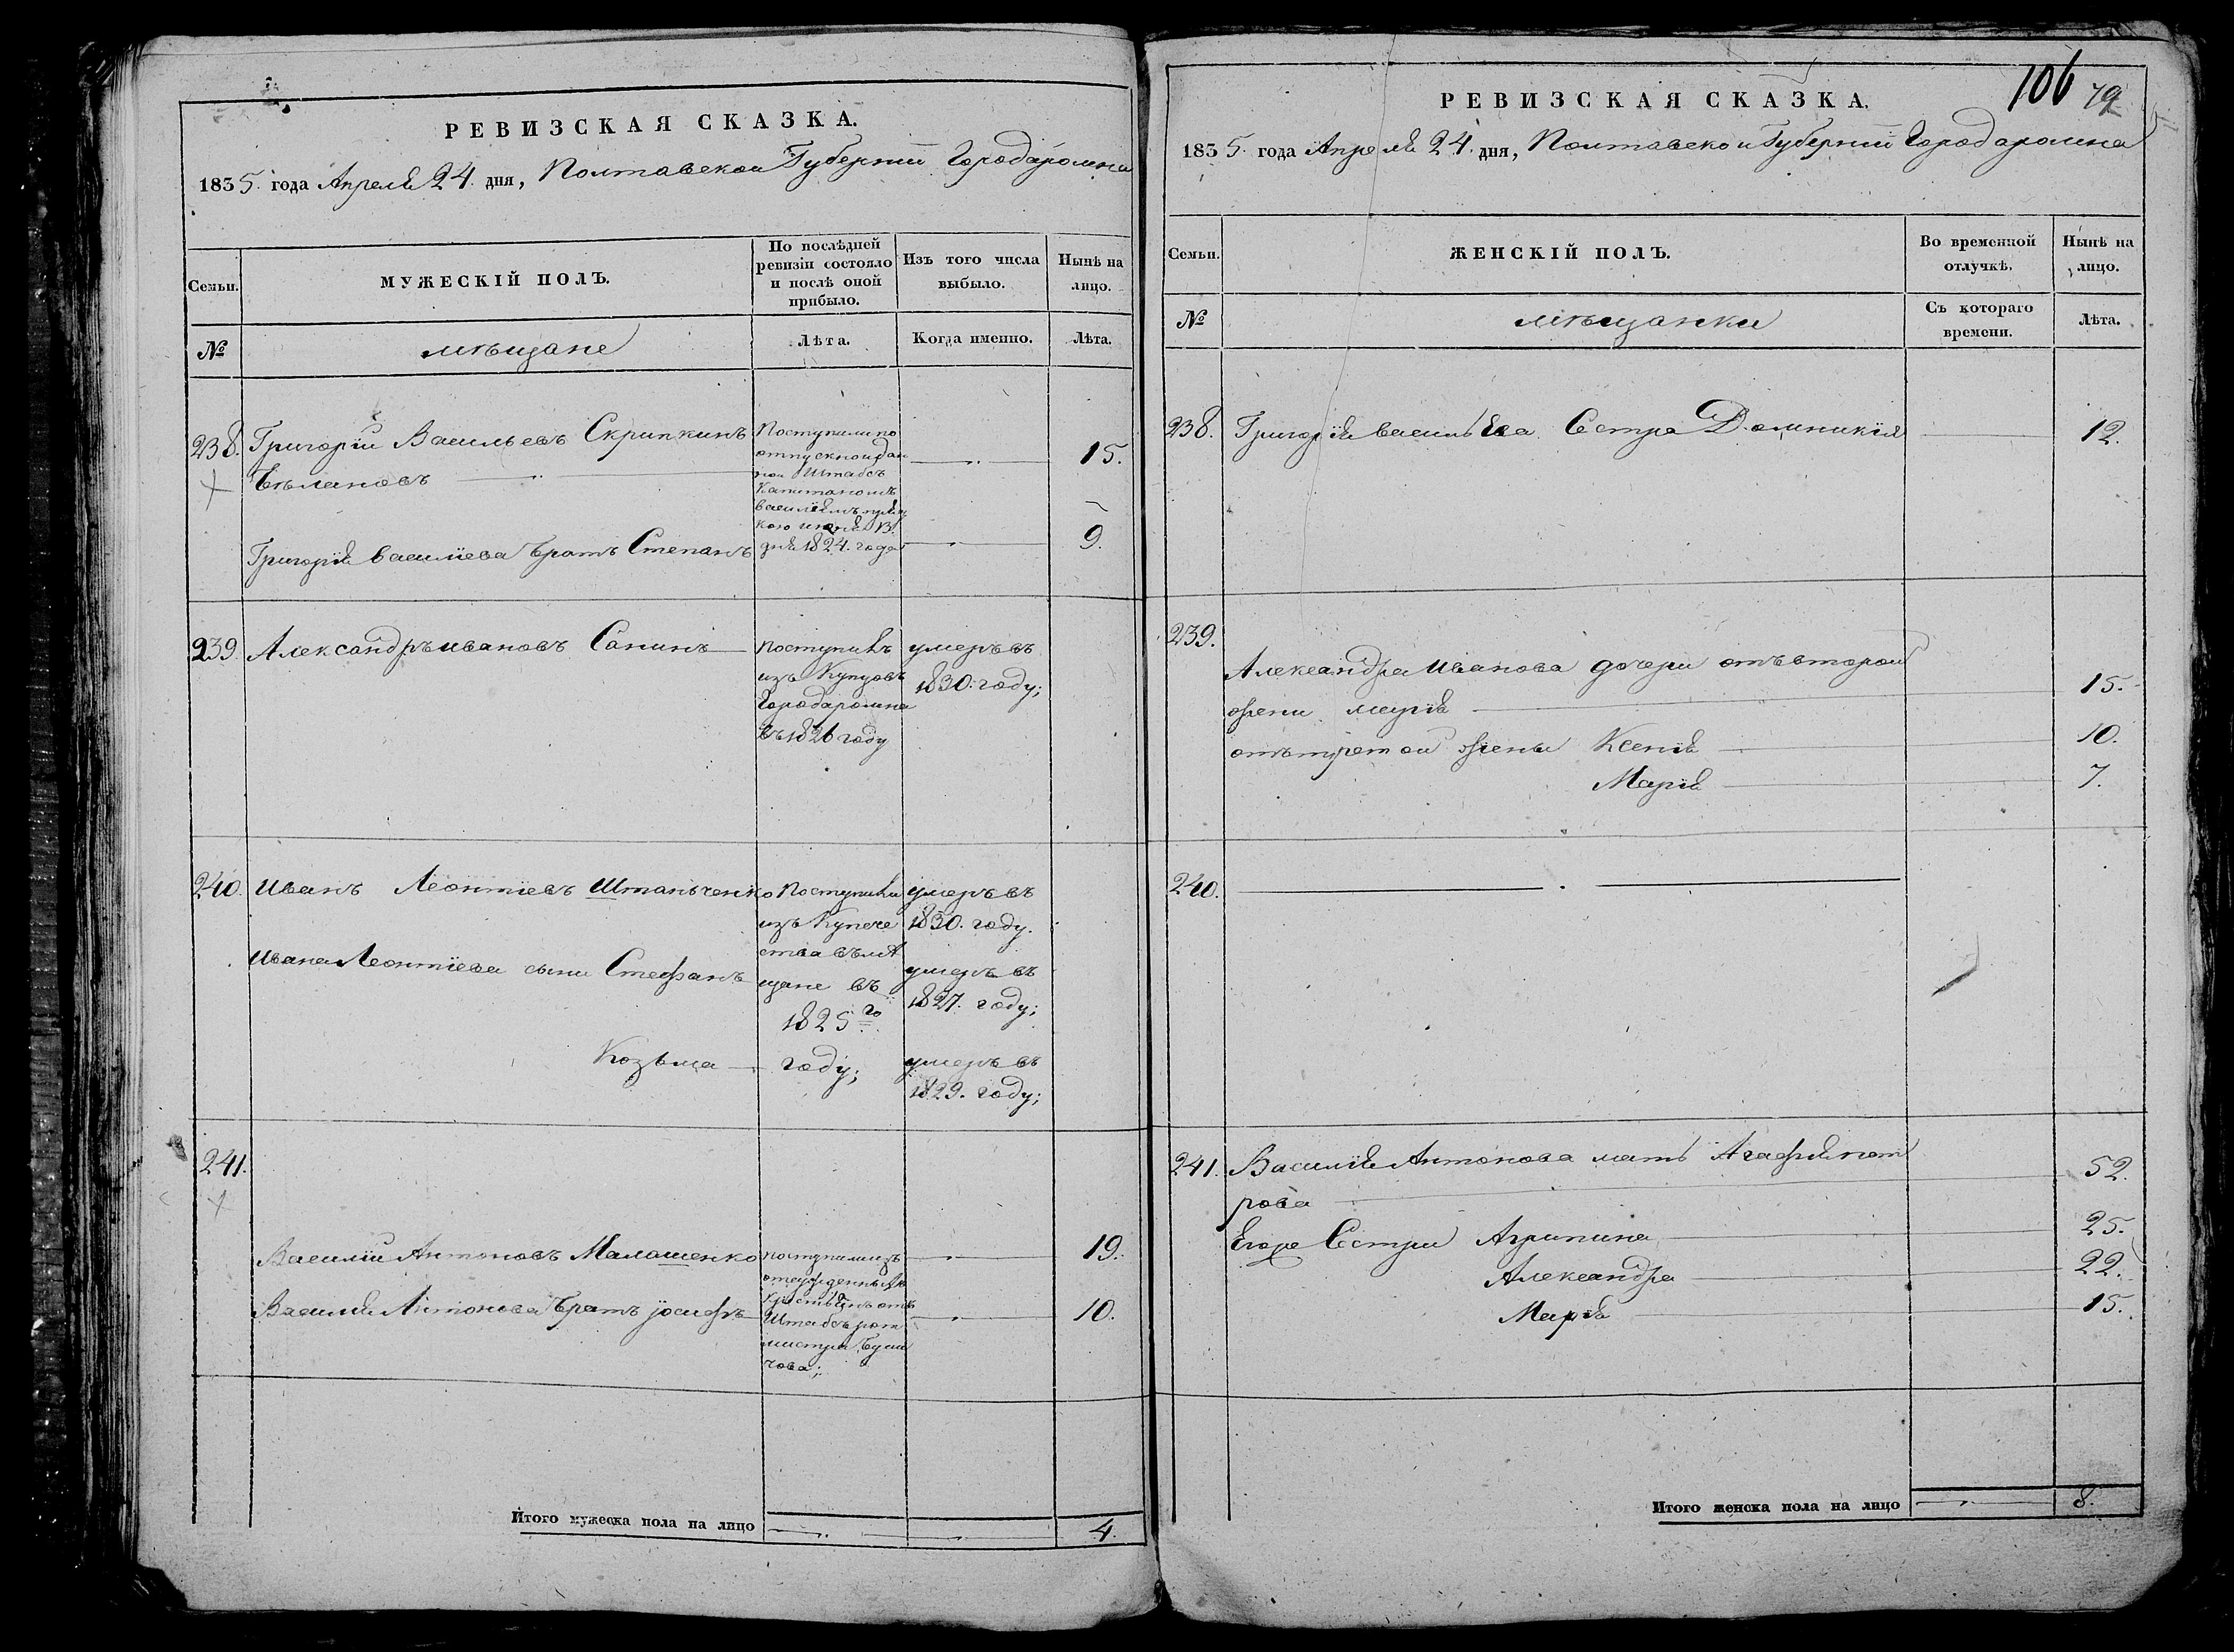 РЕВИЗСКАЯ СКАЗКА.
1835. года Апреля 24. дня, Полтавской Губернии Города ромна
Семьи.
МУЖЕСКІЙ ПОЛЪ.
По послѣдней ревизіи состояло и послѣ оной прибыло.
Изъ того числа выбыло.
Нынѣ на лицо.
№
мѣщане
Лѣта.
Когда именно.
Лѣта.
238. Григорій Васильевъ Скрипкинъ
Бѣлановъ
Поступили по
отпускной дан
ной Штабсъ
Капитаномъ
василіемъ
дня 1824. года
15.
Григорія василіева братъ Степанъ
9.
239 Александръ ивановъ Санинъ
поступилъ
изъ Купцовъ
Города ромна
въ 1826 году
умеръ въ
1830. году;
240. Иванъ Леонтіевъ Штаньченко
Поступили
изъ Купече
ства въ мѣ
щане въ
1825го
году;
умеръ въ
1830. году.
Ивана Леонтіева сыни Стефанъ
умеръ въ
1827. году;
Козьма
умеръ въ
1829. году;
241.
Василій Антоновъ Малашенко
поступили изъ
отсужденныхъ
Крестьянъ отъ
Штабсъ рот
мистра
19.
Василія Антонова братъ іосифъ
10.
Итого мужеска пола на лицо
4.
106 79
РЕВИЗСКАЯ СКАЗКА.
1835. года Апреля 24. дня, Полтавской Губернии Города ромна
Семьи.
ЖЕНСКІЙ ПОЛЪ.
Во временной отлучкѣ.
Нынѣ на лицо.
№
мѣщанки
Съ котораго времени.
Лѣта.
238. Григорія васильева Сестра Домникія 12.
239.
Александра Иванова дочери отъ второй
жени марія 15.
отъ третой жены Ксенія 10.
Марія 7.
240.
241. Василія Антонова мать Агафія пет
рова 52.
Егоже Сестри Агрипина 25.
Александра 22.
Марія 15.
Итого женска пола на лицо
8.